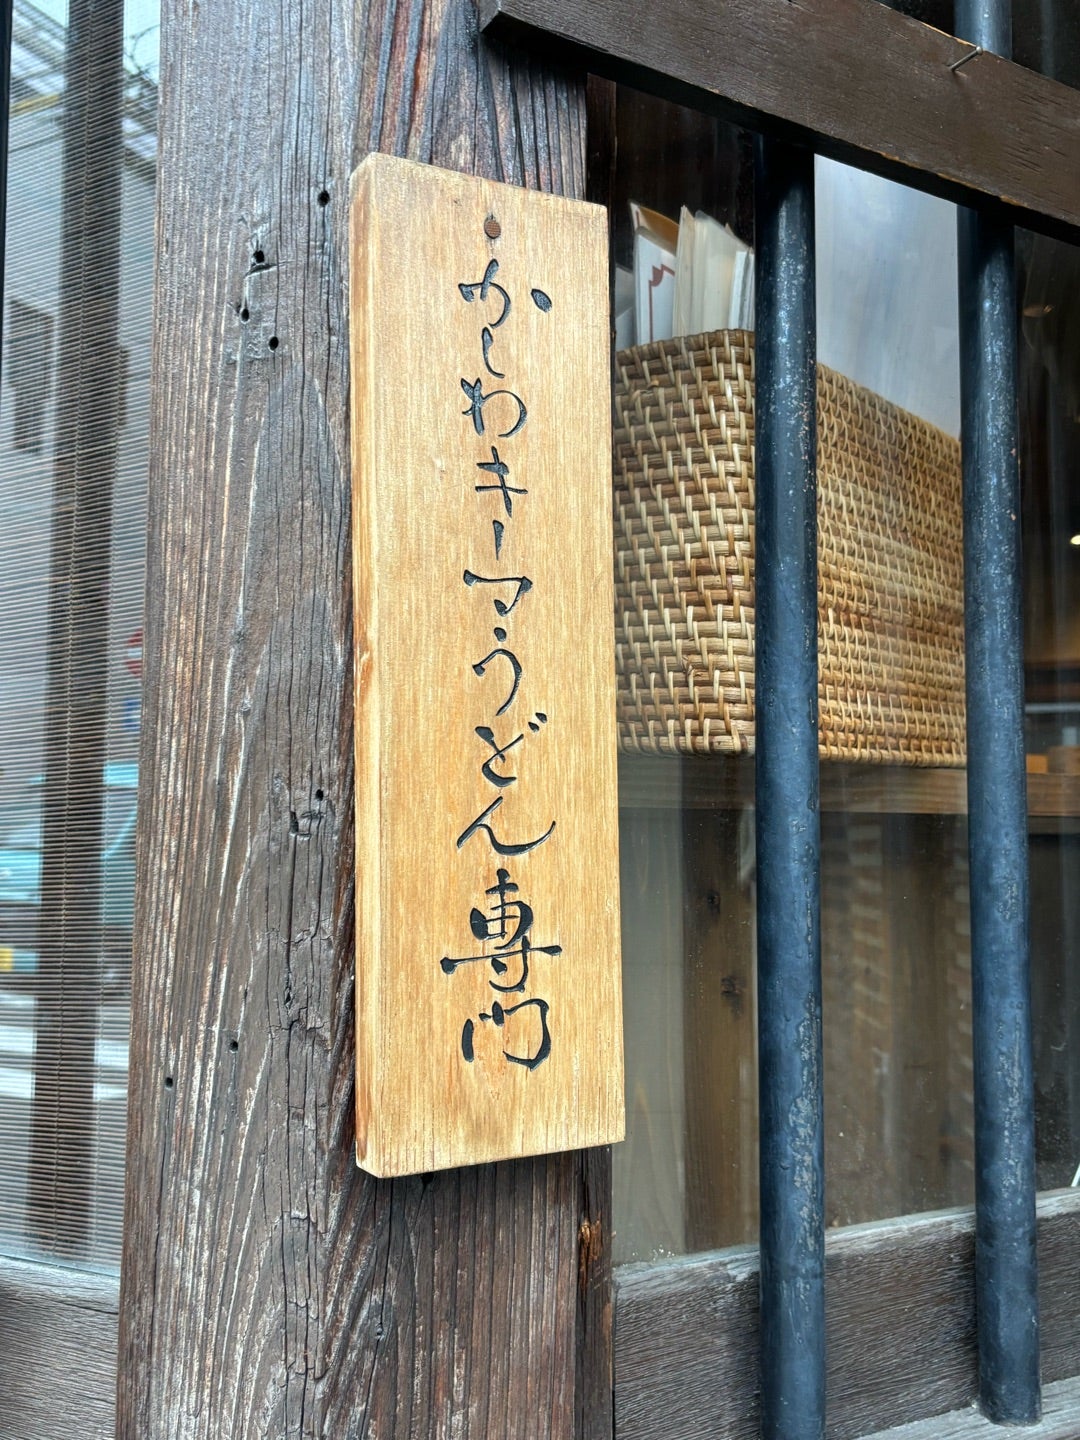 かしわキーマうどん専門